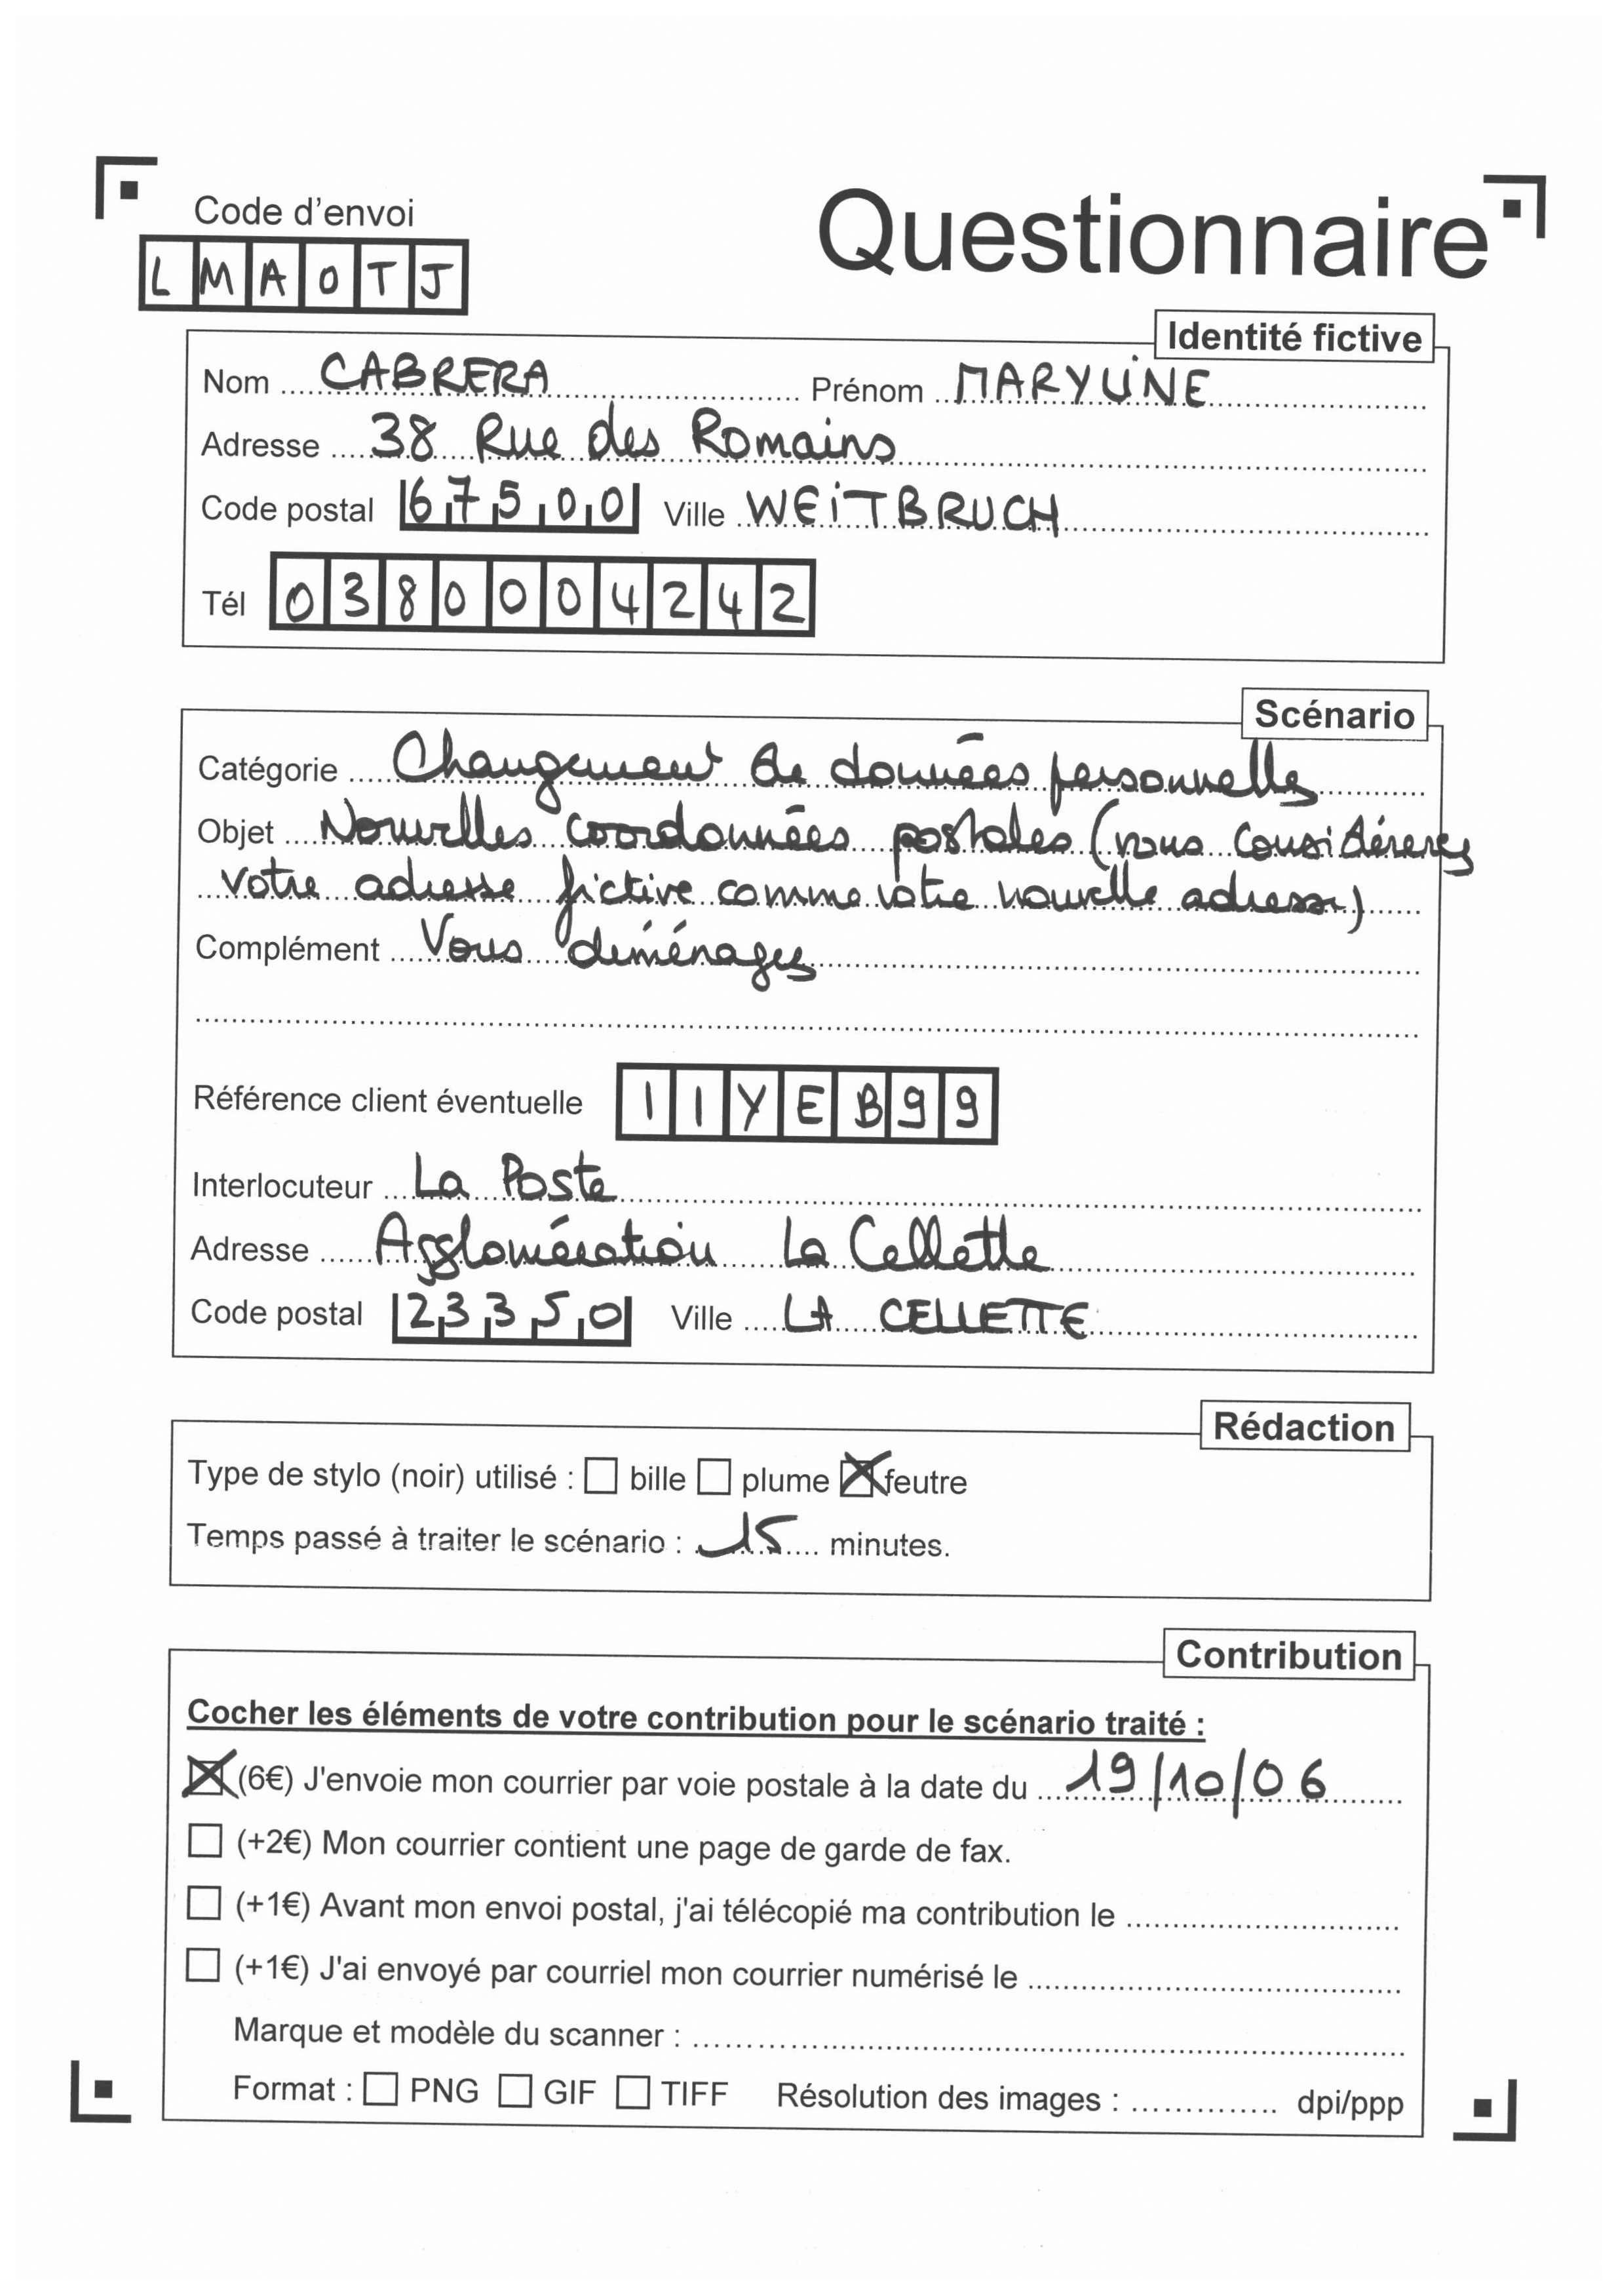 Code d'envoi
Questionnaire
LMAOTJ
Identité fictive
Nom CABRERA Prénom MARYLINE
Adresse 38 Rue des Romains
Code postal 67500 Ville WEITBRUCH
Tél 0380004242
Scénario
Catégorie Changement de données personnelles
Objet Nouvelles coordonnées postales (vous considérerez
votre adresse fictive comme votre nouvelle adresse)
Complément Vous déménagez
Référence client éventuelle 11YEB99
Interlocuteur La Poste
Adresse Agglomération La Cellette
Code postal 23350 Ville LA CELLETTE
Rédaction
Type de stylo (noir) utilisé : ☐ bille ☐ plume ☒ feutre
Temps passé à traiter le scénario : 15 minutes.
Contribution
Cocher les éléments de votre contribution pour le scénario traité :
☒ (6€) J'envoie mon courrier par voie postale à la date du 19/10/06
☐ (+2€) Mon courrier contient une page de garde de fax.
☐ (+1€) Avant mon envoi postal, j'ai télécopié ma contribution le
☐ (+1€) J'ai envoyé par courriel mon courrier numérisé le
Marque et modèle du scanner :
Format : ☐ PNG ☐ GIF ☐ TIFF Résolution des images : dpi/ppp